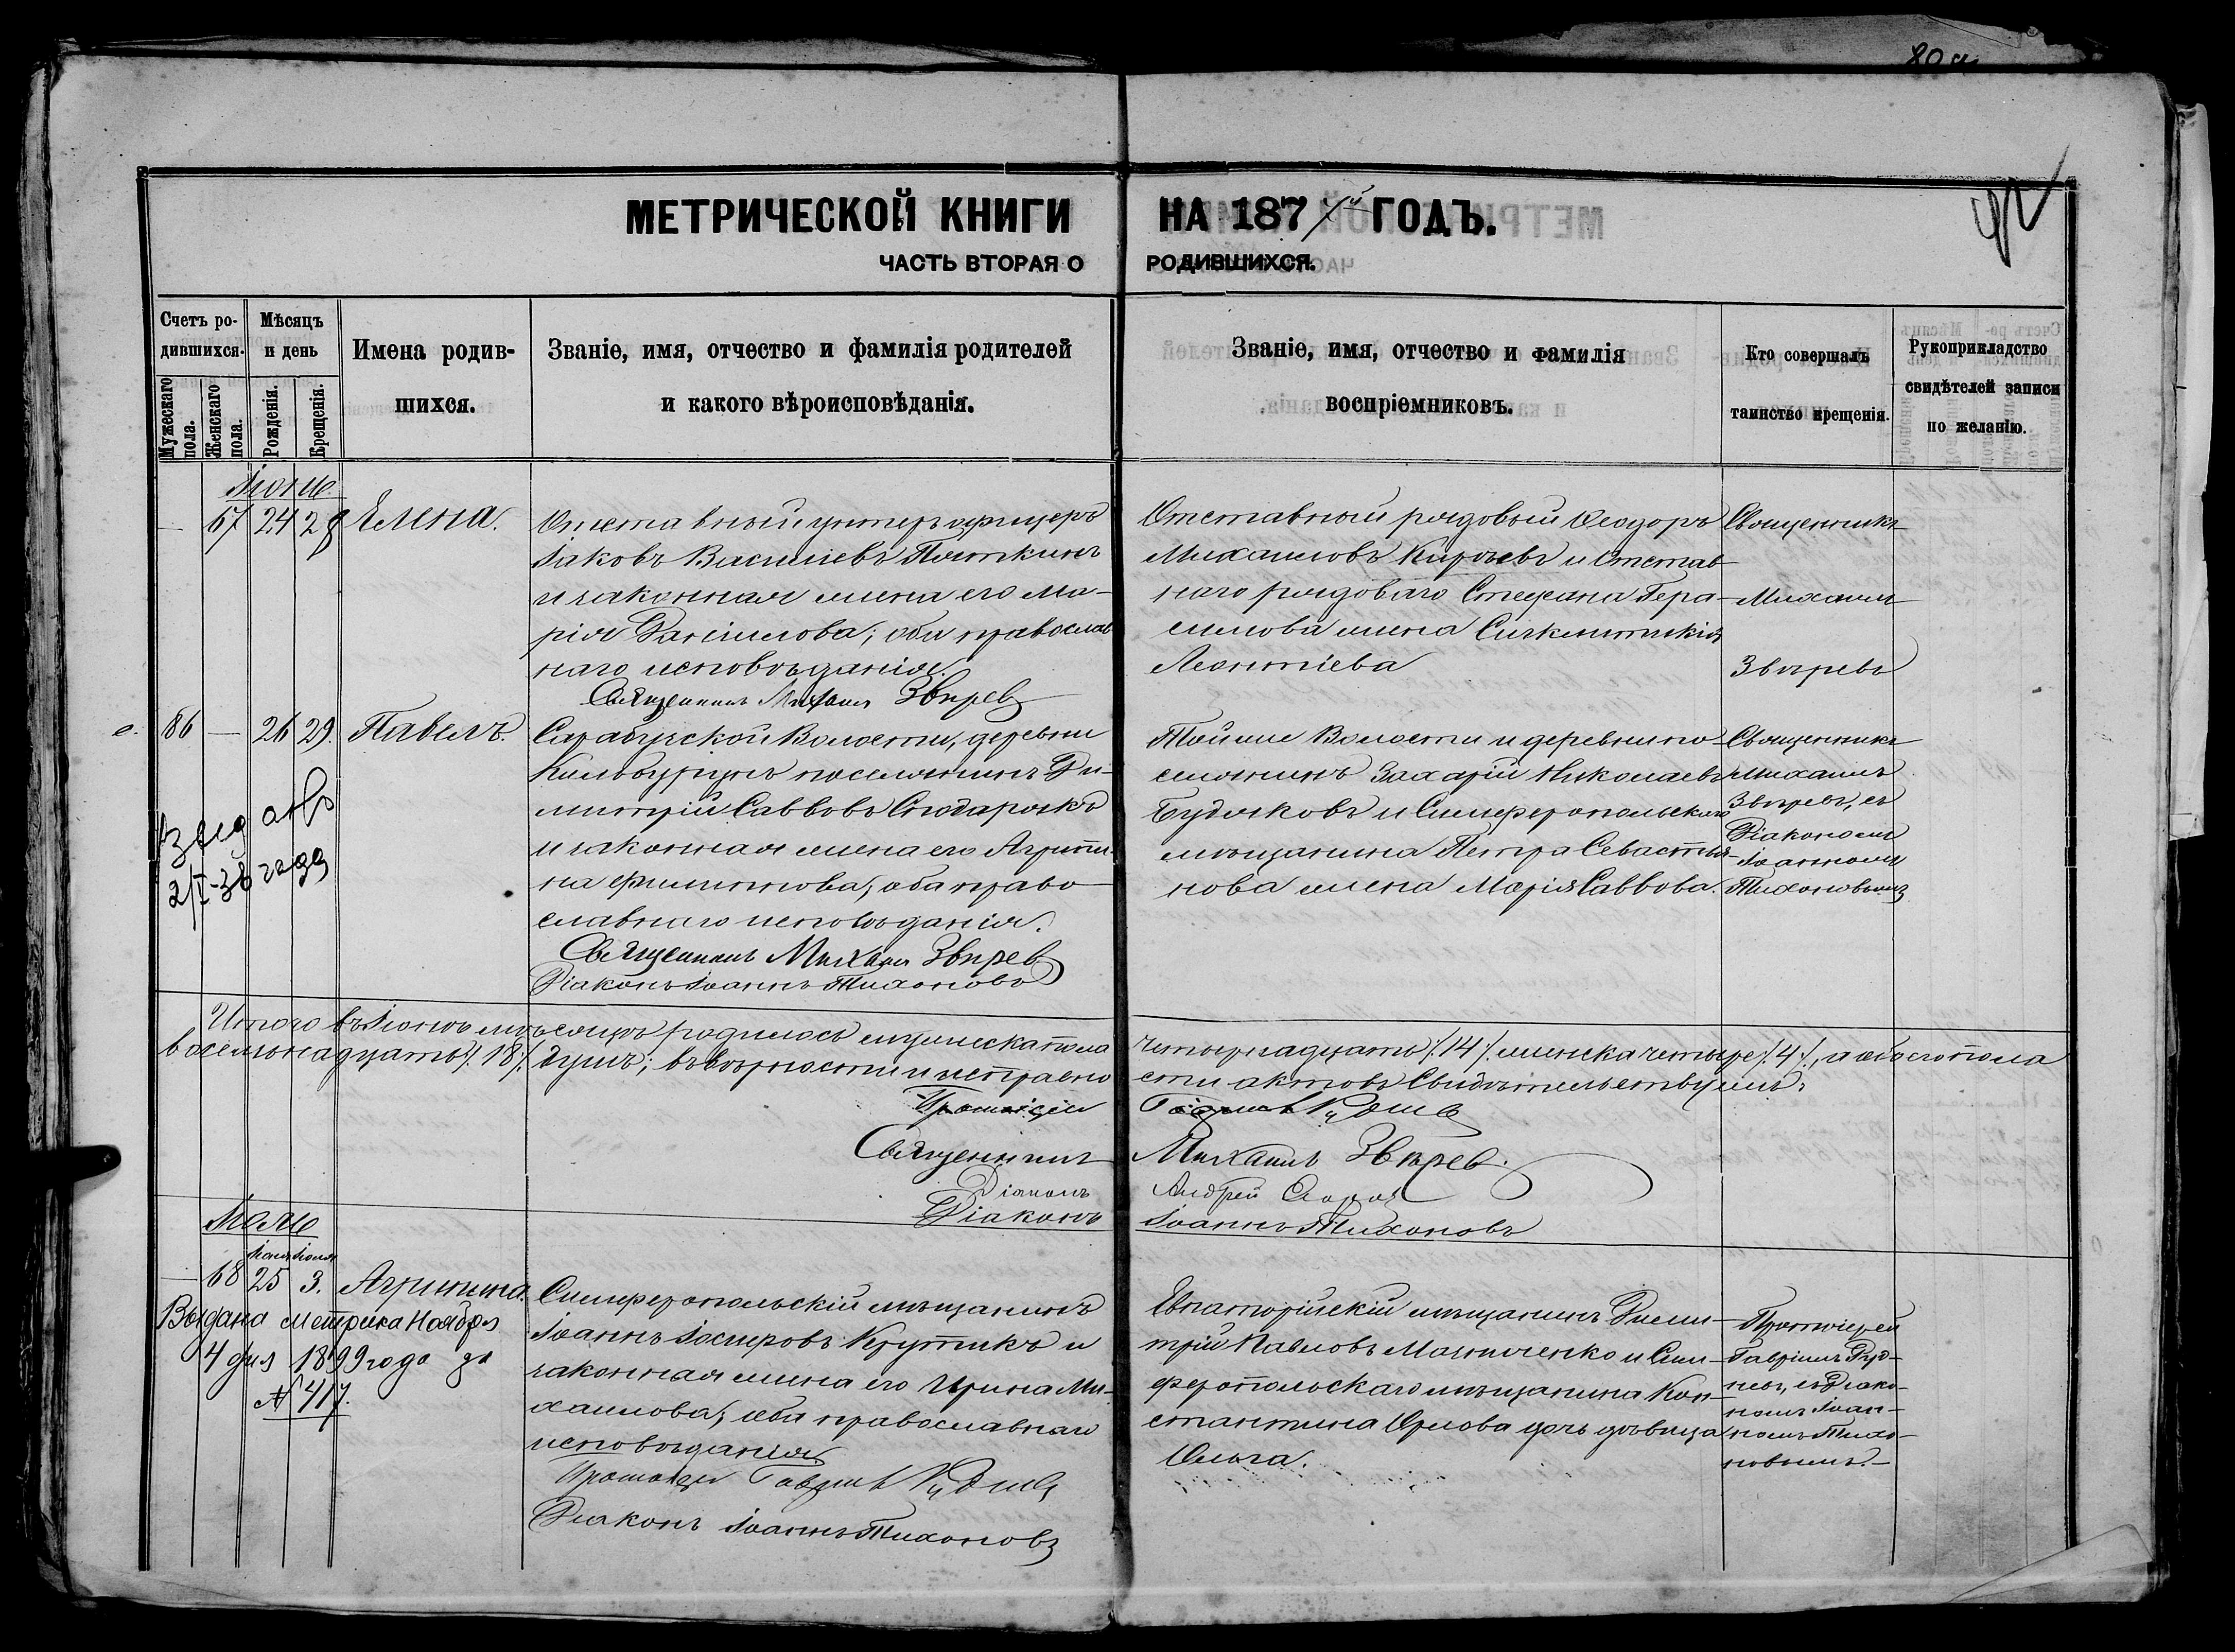 МЕТРИЧЕСКОЙ КНИГИ НА 187 ГОДЪ.
ЧАСТЬ ВТОРАЯ О РОДИВШИХСЯ.
Счетъ родившихся.
Мужескаго пола.
Женскаго пола.
Мѣсяцъ и день
Рожденія.
Крещенія.
Имена родившихся.
Званіе, имя, отчество и фамилія родителей
и какого вѣроисповѣданія.
Званіе, имя, отчество и фамилія
воспріемниковъ.
Кто совершалъ
таинство крещенія.
Рукоприкладство
свидѣтелей записи
по желанію.
Іюнь
67 24 28 Елена.
Отставный унтеръ офицеръ
Іаковъ Василіевъ
и законная жена его Ма-
рія; оба православ
наго исповѣданія.
Священникъ Михаилъ Звѣрев
Отставный рядовый Ѳеодоръ
Михаиловъ Кирѣевъ и Отстав
наго рядоваго Стефана Гера-
симова жена Сигклитикія
Леонтіева
Священникъ
Михаилъ
Звѣревъ
86 — 26 29. Павелъ.
Сарабузской Волости, деревни
поселянинъ Ди-
митрій Саввовъ
и законная жена его Агрипи-
на Филиппова, оба право
славнаго исповѣданія.
Священникъ Михаил Звѣрев
Діаконъ Іоаннъ Тихоновъ
Тойже Волости и деревни по-
селянинъ Захарій Николаевъ
и Симферопольскаго
мѣщанина Петра Севастья-
нова жена Марія Саввова.
Священникъ
Михаилъ
Звѣревъ, съ
Діакономъ
Іоанномъ
Тихоновымъ
Итого въ Іюнѣ мѣсяцѣ родилось мужеска пола четырнадцать /14/ женска четыре /4/, а обоего пола
восемьнадцать /18/ душъ; въ вѣрности и исправно сти актовъ Свидѣтельствуемъ:
Протоіерей
Священникъ Михаилъ Звѣрев.
Діаконъ Андрей
Діаконъ Іоаннъ Тихоновъ
68 25 3. Агрипина.
Выдана метрика Ноября
4 дня 1899 года за
№ 417.
Симферопольскій мѣщанинъ
Іоаннъ Іосифовъ Крутикъ и
законная жена его Ирина Ми-
хаилова, оба православнаго
исповѣданія
Діаконъ Іоаннъ Тихоновъ
Евпаторійскій мѣщанинъ Дими-
трій Павловъ и Сим-
феропольскаго мѣщанина Кон-
стантина Орлова дочь дѣвица
Ольга.
Протоіерей
Гавріилъ Руд-
невъ, съ Діако-
номъ Іоан-
номъ Тихо-
новымъ.